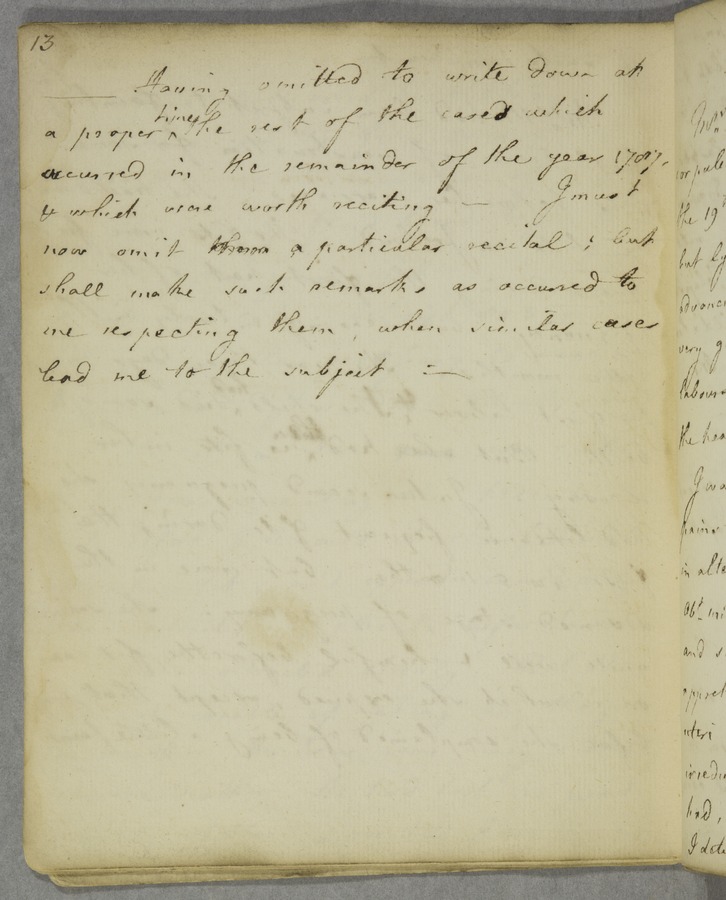 13
Having omitted to write down at
a proper ^time the rest of the cases which
occurred in the remainder of the year 1787,
& which were worth reciting — I must
now omit a particular recital; but
shall make such remarks as occurred to
me respecting them, when similar cases
lead me to the subject :—
the 19
but
advance
very g
labour
the hea
I wa
pains
in alte
Obt
and s
appre
uteri
had,
I dete